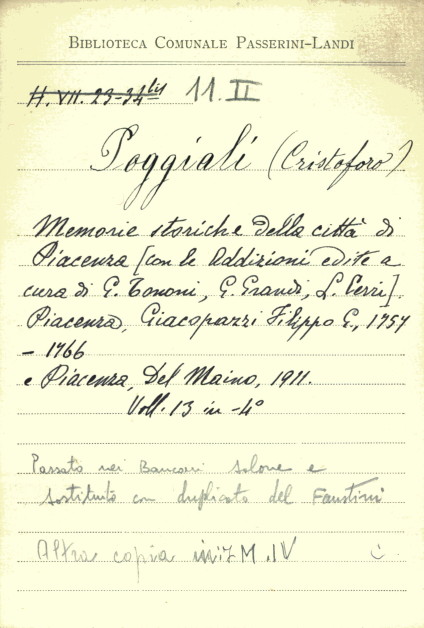 BIBLIOTECA COMUNALE PASSERINI-LANDI
H. VII. 23-34bis 11. II
Poggiali (Cristoforo)
Memorie storiche della città di
Piacenza [con le Addizioni edite a
cura di G. Tononi, G. Grandi, L. Cerri].
Piacenza, Giacopazzi Filippo G., 1757
- 1766
e Piacenza, Del Maino, 1911.
Voll. 13 in -4°
Passato nei Banconi salone e
sostituito con duplicato del Faustini
Altra copia M. IV